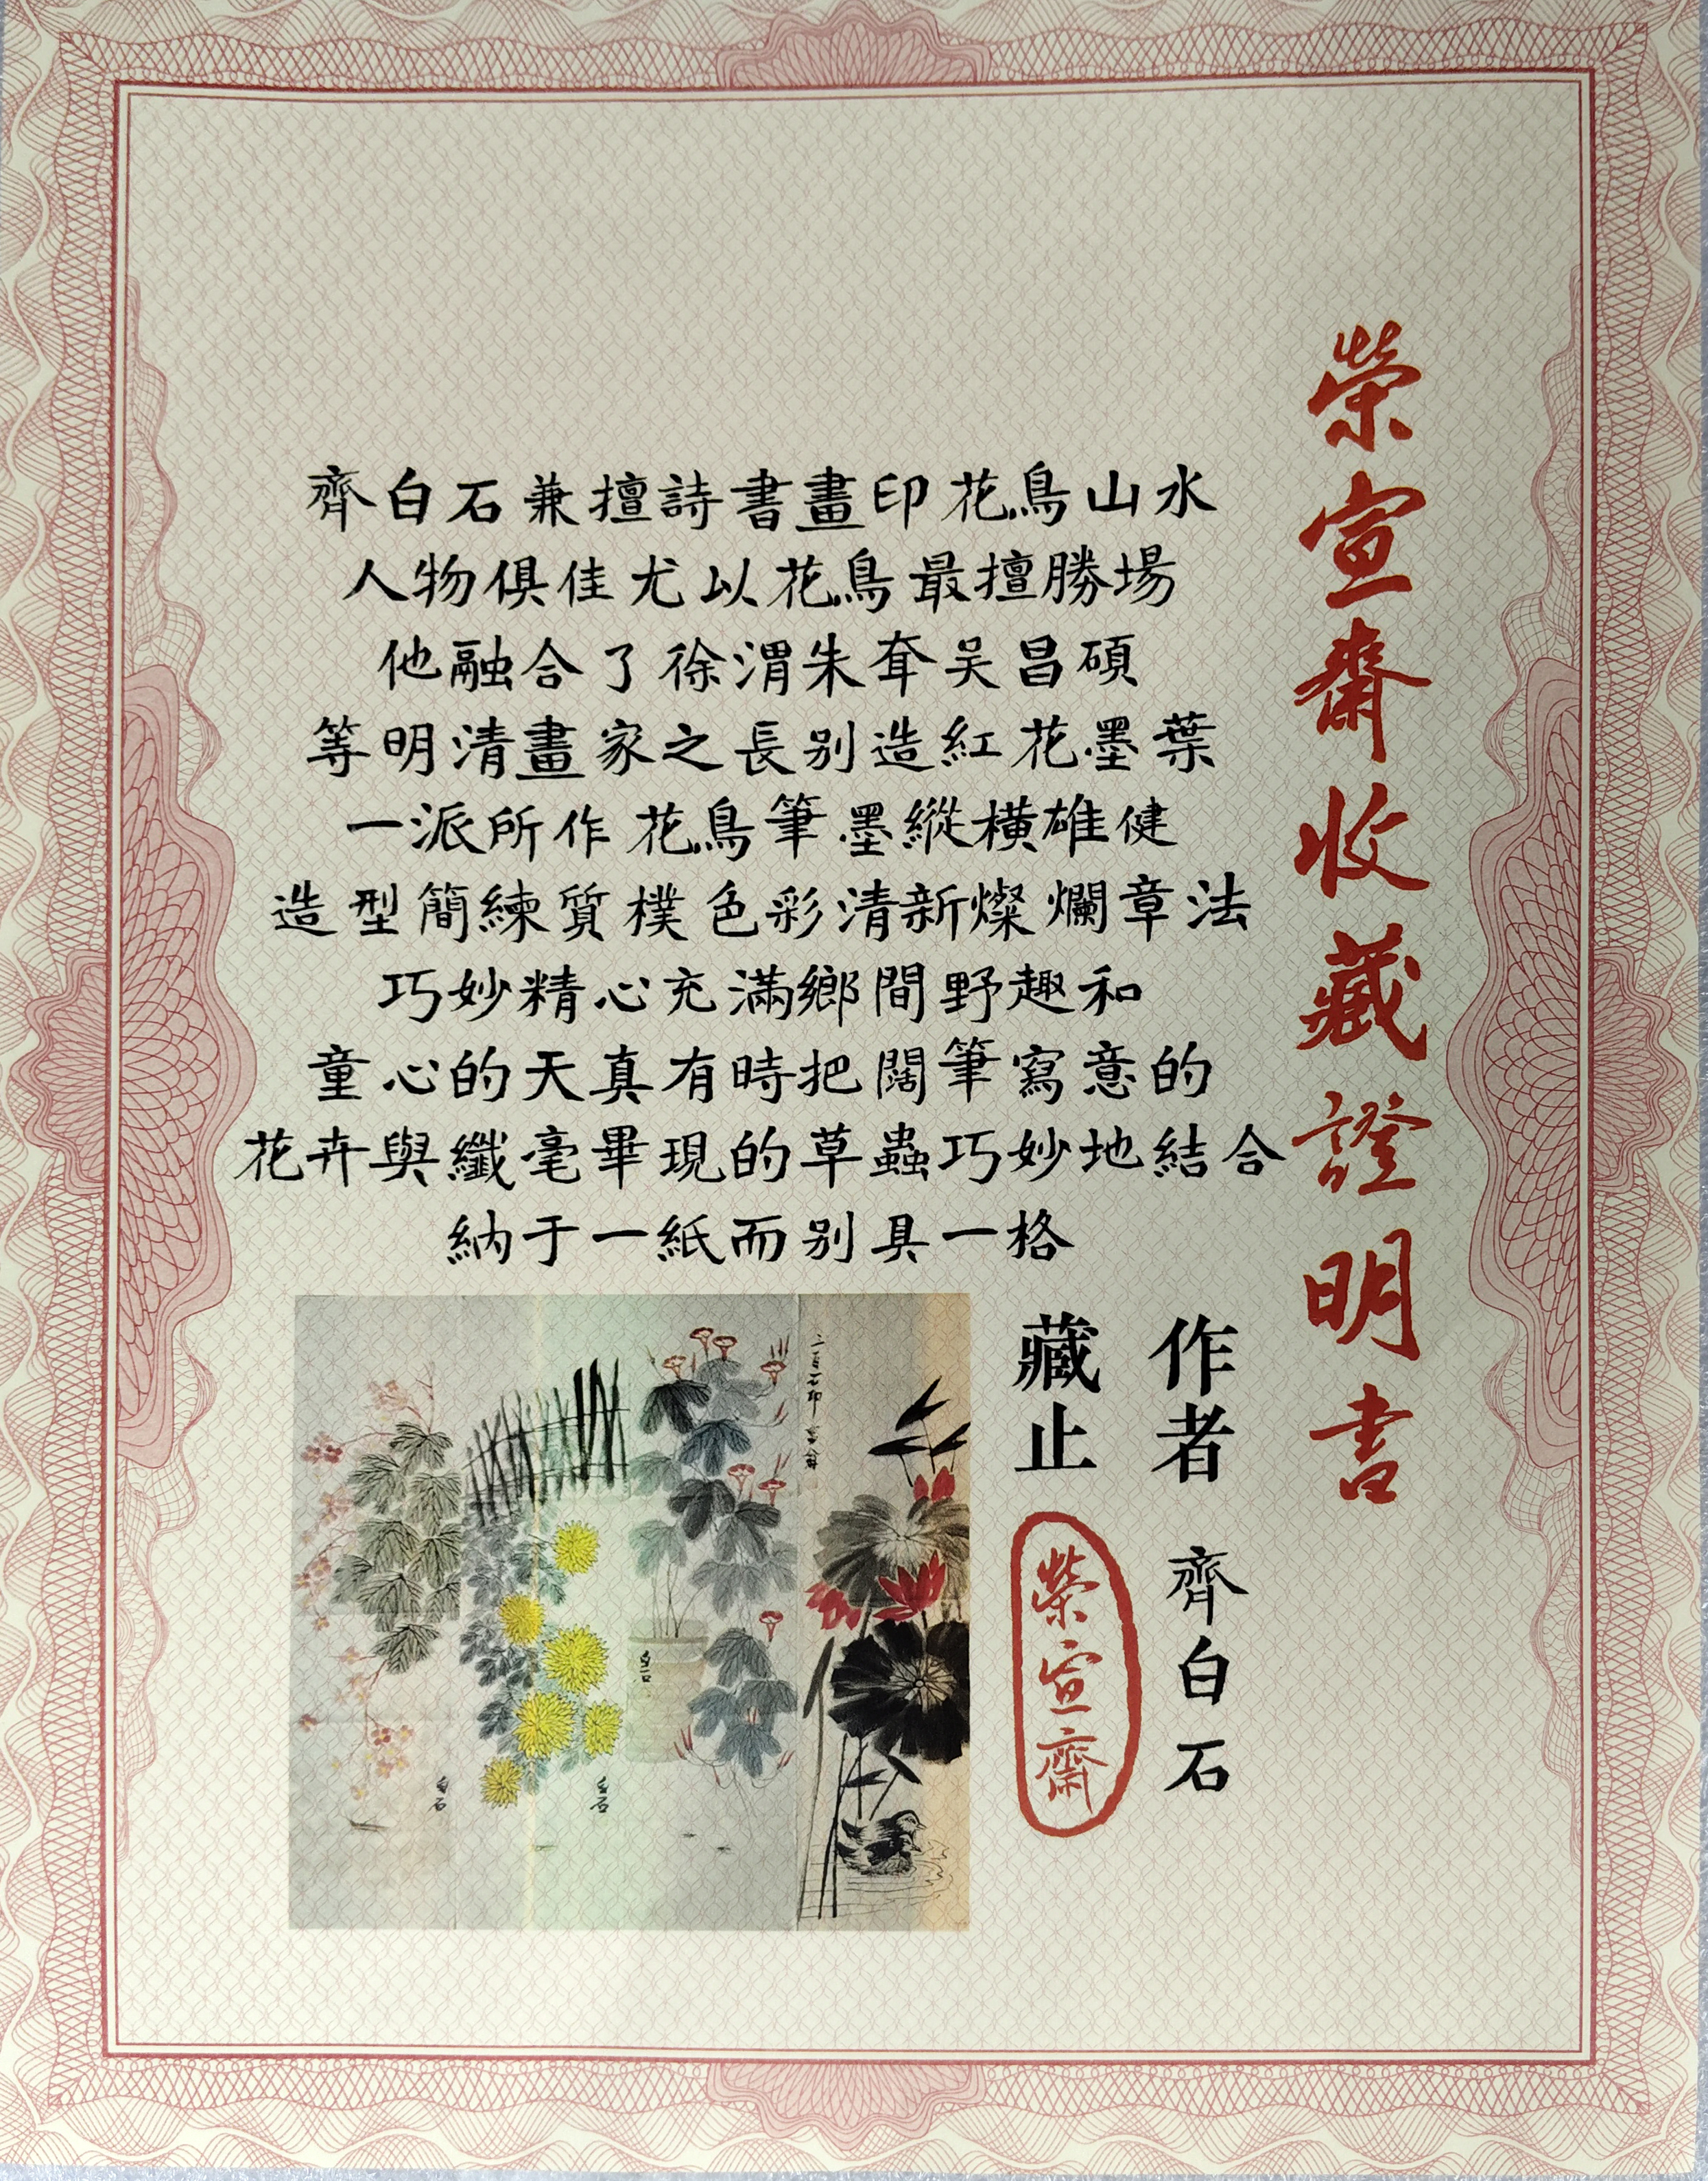 榮宣齋收藏證明書
齊白石兼擅詩書畫印花鳥山水
人物俱佳尤以花鳥最擅勝場
他融合了徐渭朱耷吴昌碩
等明清畫家之長别造紅花墨葉
一派所作花鳥筆墨縱橫雄健
造型簡練質樸色彩清新燦爛章法
巧妙精心充滿鄉間野趣和
童心的天真有時把闊筆寫意的
花卉與纖毫畢現的草蟲巧妙地結合
納于一紙而别具一格
作者 齊白石
藏止 榮宣齋
白石
白石
白石